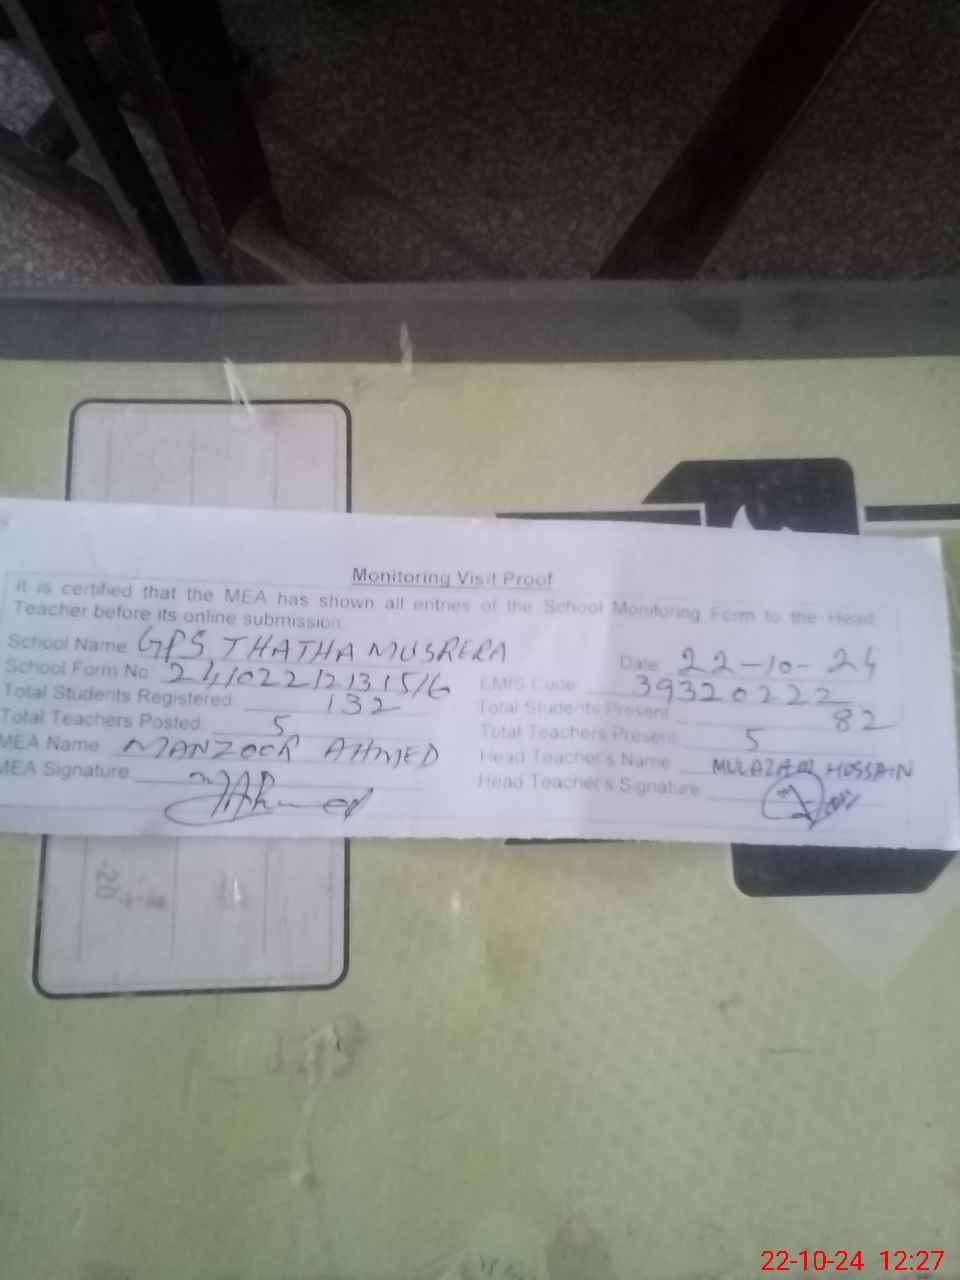 Monitoring Visit Proof
It is certified that the MEA has shown all entries of the School Monitoring Form to the Head
Teacher before its online submission.
School Name GPS THATHA MUSRERA
Date 22-10-24
School Form No. 241022121315/6
EMIS Code 39320222
Total Students Registered 132
Total Students Present 82
Total Teachers Posted 5
Total Teachers Present 5
MEA Name MANZOOR AHMED
Head Teacher's Name HUSSAIN
MEA Signature
Head Teacher's Signature
-20
22-10-24 12:27